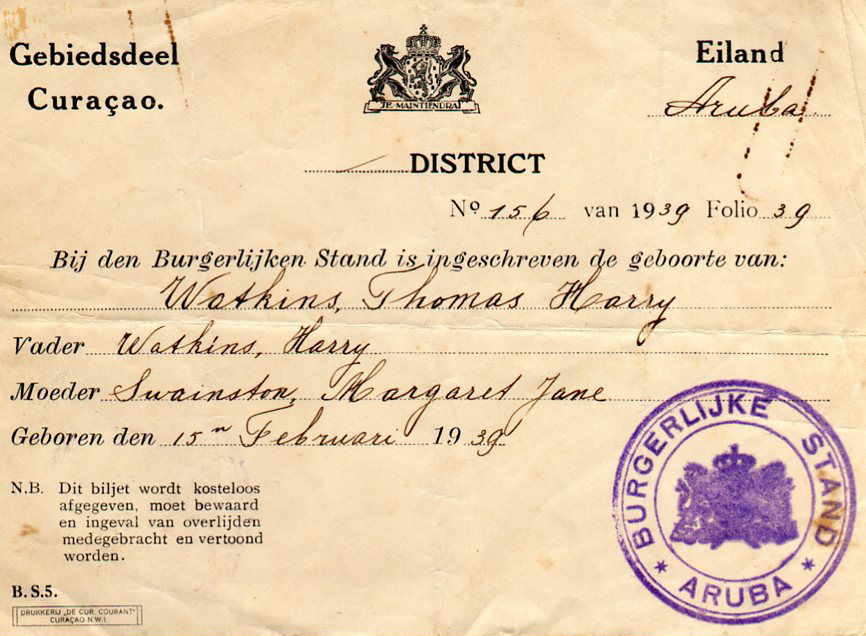 Gebiedsdeel
Curaçao.
JE MAINTIENDRAI
Eiland
Aruba
DISTRICT
Nº 156 van 1939 Folio 39
Bij den Burgerlijken Stand is ingeschreven de geboorte van:
Watkins, Thomas Harry
Vader Watkins, Harry
Moeder Swainston, Margaret Jane
Geboren den 15n Februari 1939
N.B. Dit biljet wordt kosteloos
afgegeven, moet bewaard
en ingeval van overlijden
medegebracht en vertoond
worden.
B.S5.
DRUKKERIJ „DE CUR. COURANT"
CURAÇAO N.W.I.
BURGERLIJKE STAND
* ARUBA *